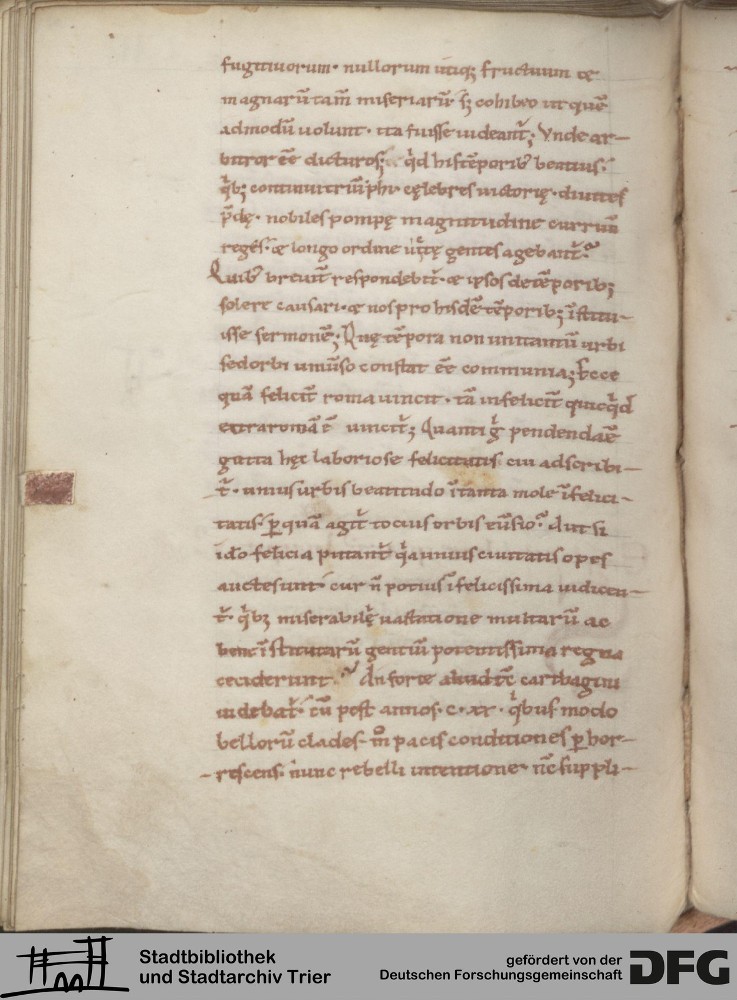 fugitiuorum· nullorum utiq; fructuum ⁊
magnarū tam̄ miseriarū· s; cohibeo ut quē
admodū uolunt· ita fuisse uideant̄; Vnde ar-
bitror ēē dicturos; q̇d his tēporib; beatius·
q̇b; continui triūphi cęlebres uictorię· diuites
p̄dę· nobiles pompę magnitudine currum
reges· ⁊ longo ordine uictę gentes agebant̄·
Quib; breuit̄ respondebit̄· ⁊ ipsos de tēporib;
solere causari· ⁊ nos pro hisdē tēporib; īstitu-
isse sermonē; Quę tēpora non uni tantū urbi
sed orbi uniūso constat ēē communia; Ecce
quā felicit̄ roma uincit· tā infelicit̄ quicq̇d
extra romā ē uincit̄; Quanti ġ pendenda ē
gutta hęc laboriose felicitatis cui adscribi-
t̄· unius urbis beatitudo ī tanta mole īfelici-
tatis· p quā agit̄ tocius orbis eūsio· Aut si
ido felicia putant̄ q̇a unius ciuitatis opes
auctę sunt· cur n̄ potius īfelicissima iudican-
t̄· q̇b; miserabilę uastatione multarū ac
bene īstitutarū gentiū potentissima regna
ceciderunt· An forte aliud tc̄ cartbagini
uidebat̄· cū post annos· c· xx· q̇bus modo
bellorū clades· m̊ pacis conditiones p hor-
rescens· nunc rebelli intentione· nc̄ suppli-
Stadtbibliothek
und Stadtarchiv Trier
gefördert von der
Deutschen Forschungsgemeinschaft
DFG